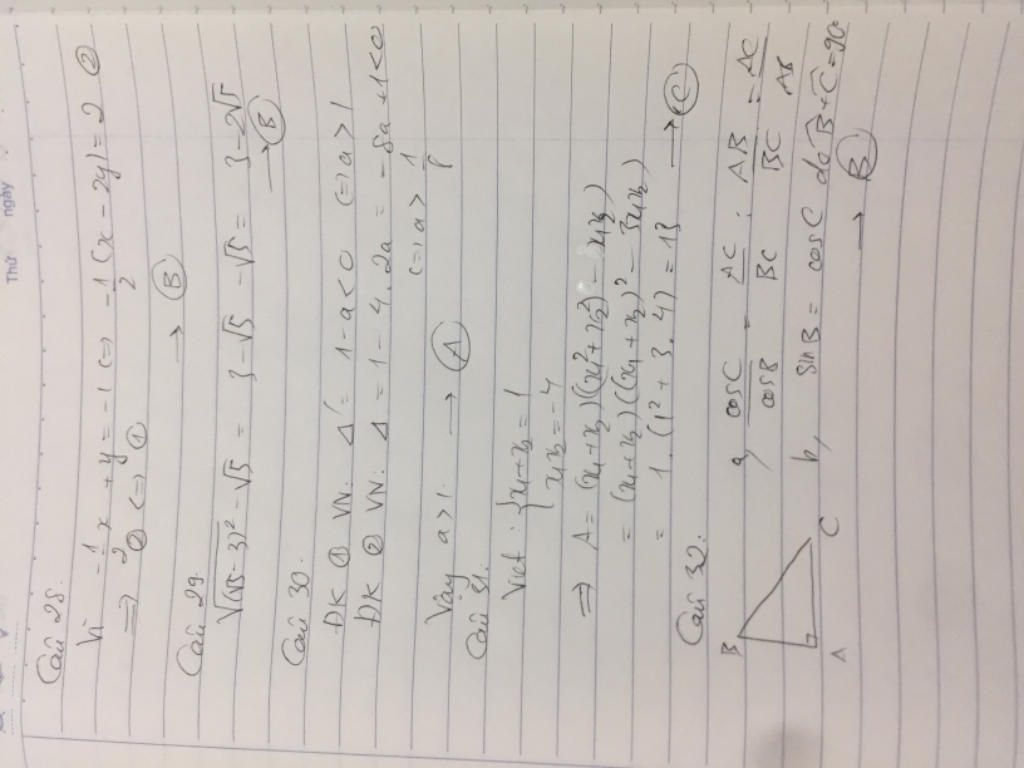 Thứ
ngày
Câu 28:
Vì -1/2 x + y = -1 (=) -1/2 (x - 2y) = 2 ②
=) ② <=) ①
→ Ⓑ
Câu 29:
√(√5 - 3)² - √5 = 3 - √5 - √5 = 3 - 2√5
→ Ⓑ
Câu 30:
ĐK ① VN: Δ' = 1 - a < 0 (=) a > 1
ĐK ② VN: Δ = 1 - 4.2a = -8a + 1 < 0
(=) a > 1/8
Vậy a > 1. → Ⓐ
Câu 31:
Viet: { x₁ + x₂ = 1
x₁x₂ = -4
=) A = (x₁ + x₂)(x₁² + x₂² - x₁x₂)
= (x₁ + x₂)((x₁ + x₂)² - 3x₁x₂)
= 1.(1² + 3.4) = 13 → Ⓒ
Câu 32:
a, cosC/cosB = AC/BC : AB/BC = AC/AB
b, sinB = cosC do B̂ + Ĉ = 90°
→ Ⓑ
B
A
C